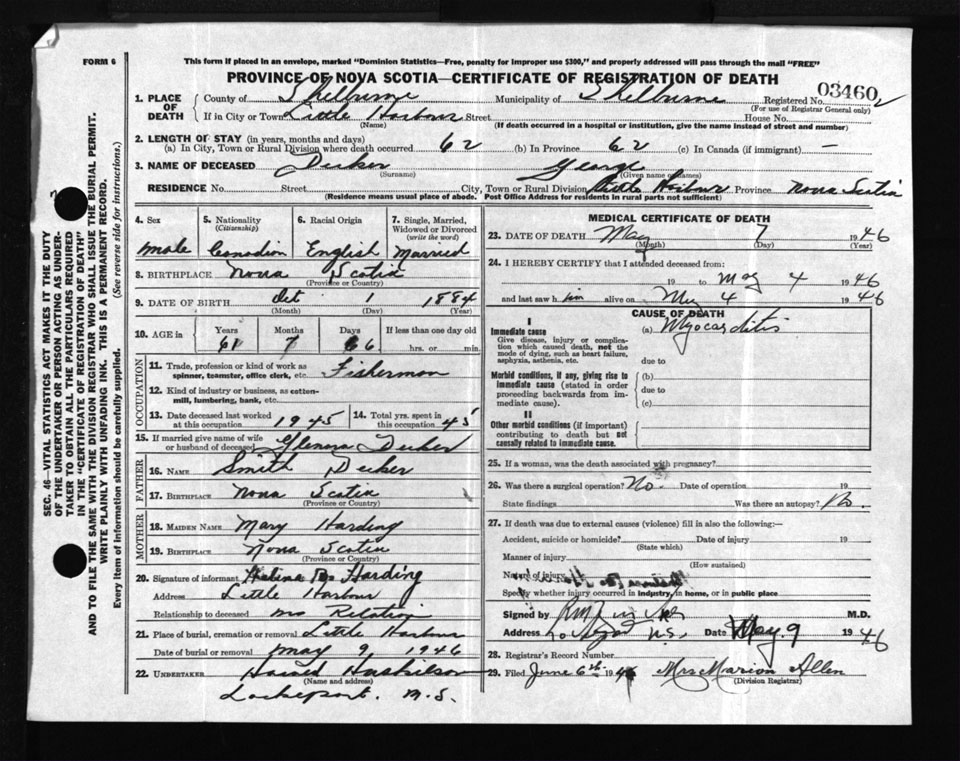 FORM 6
This form if placed in an envelope, marked "Dominion Statistics—Free, penalty for improper use $300," and properly addressed will pass through the mail "FREE"
PROVINCE OF NOVA SCOTIA—CERTIFICATE OF REGISTRATION OF DEATH
03460
1. PLACE OF DEATH
County of Shelburne Municipality of Shelburne Registered No.
(For use of Registrar General only)
If in City or Town Little Harbour Street House No.
(Name) (If death occurred in a hospital or institution, give the name instead of street and number)
2. LENGTH OF STAY (in years, months and days)
(a) In City, Town or Rural Division where death occurred 62 (b) In Province 62 (c) In Canada (if immigrant) —
3. NAME OF DECEASED Decker George
(Surname) (Given name or names)
RESIDENCE No. Street City, Town or Rural Division Little Harbour Province Nova Scotia
(Residence means usual place of abode. Post Office Address for residents in rural parts not sufficient)
4. Sex
male
5. Nationality
(Citizenship)
Canadian
6. Racial Origin
English
7. Single, Married, Widowed or Divorced
(write the word)
Married
8. BIRTHPLACE Nova Scotia
(Province or Country)
9. DATE OF BIRTH Oct 1 1884
(Month) (Day) (Year)
10. AGE in
Years Months Days If less than one day old
61 7 6 hrs. or min.
OCCUPATION
11. Trade, profession or kind of work as
spinner, teamster, office clerk, etc. Fisherman
12. Kind of industry or business, as cotton-
mill, lumbering, bank, etc.
13. Date deceased last worked
at this occupation 1945
14. Total yrs. spent in
this occupation 45
15. If married give name of wife
or husband of deceased Decker
FATHER
16. NAME Smith Decker
17. BIRTHPLACE Nova Scotia
MOTHER
18. MAIDEN NAME Mary Harding
19. BIRTHPLACE Nova Scotia
(Province or Country)
20. Signature of informant Harding
Address Little Harbour
Relationship to deceased no Relation
21. Place of burial, cremation or removal Little Harbour
Date of burial or removal May 9, 1946
22. UNDERTAKER
(Name and address)
Lockeport. N.S.
MEDICAL CERTIFICATE OF DEATH
23. DATE OF DEATH May 7 1946
(Month) (Day) (Year)
24. I HEREBY CERTIFY that I attended deceased from:
19 to May 4 1946
and last saw h im alive on May 4 1946
CAUSE OF DEATH
I
Immediate cause
Give disease, injury or complica-
tion which caused death, not the
mode of dying, such as heart failure,
asphyxia, asthenia, etc.
(a) Myocarditis
due to
Morbid conditions, if any, giving rise to
immediate cause (stated in order
proceeding backwards from im-
mediate cause).
(b)
due to
(c)
II
Other morbid conditions (if important)
contributing to death but not
causally related to immediate cause.
25. If a woman, was the death associated with pregnancy?
26. Was there a surgical operation? No. Date of operation 19
State findings Was there an autopsy? No.
27. If death was due to external causes (violence) fill in also the following:—
Accident, suicide or homicide? Date of injury 19
(State which)
Manner of injury
(How sustained)
Nature of injury
Specify whether injury occurred in industry, in home, or in public place
Signed by M.D.
Address N.S. Date May 9 1946
28. Registrar's Record Number
29. Filed June 6th 1946 Mrs Marion Allen
(Division Registrar)
SEC. 46—VITAL STATISTICS ACT MAKES IT THE DUTY
OF THE UNDERTAKER OR PERSON ACTING AS UNDER-
TAKER TO OBTAIN ALL THE PARTICULARS REQUIRED
IN THE "CERTIFICATE OF REGISTRATION OF DEATH"
AND TO FILE THE SAME WITH THE DIVISION REGISTRAR WHO SHALL ISSUE THE BURIAL PERMIT.
WRITE PLAINLY WITH UNFADING INK. THIS IS A PERMANENT RECORD.
Every item of Information should be carefully supplied. (See reverse side for instructions.)